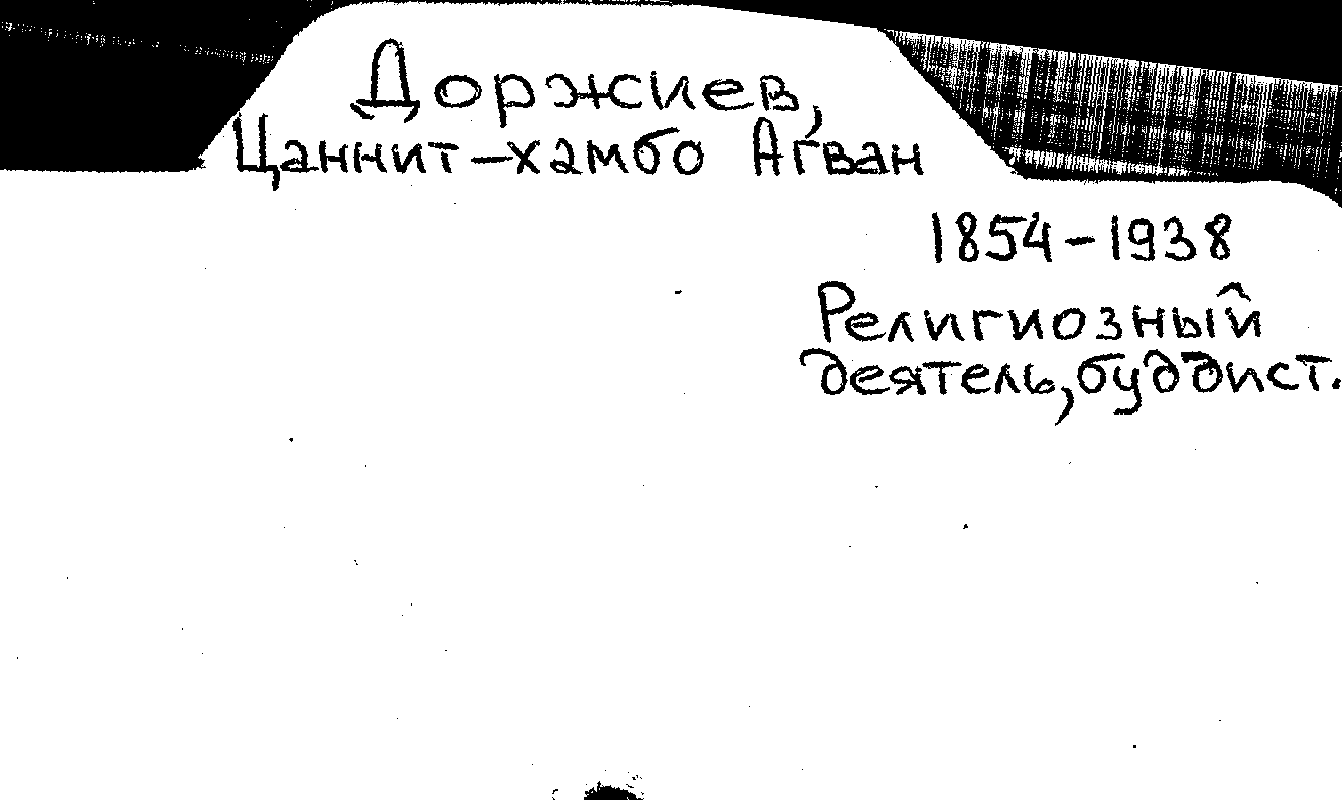 Доржиев,
Цаннит-хамбо Агван
1854-1938
Религиозный
деятель, буддист.